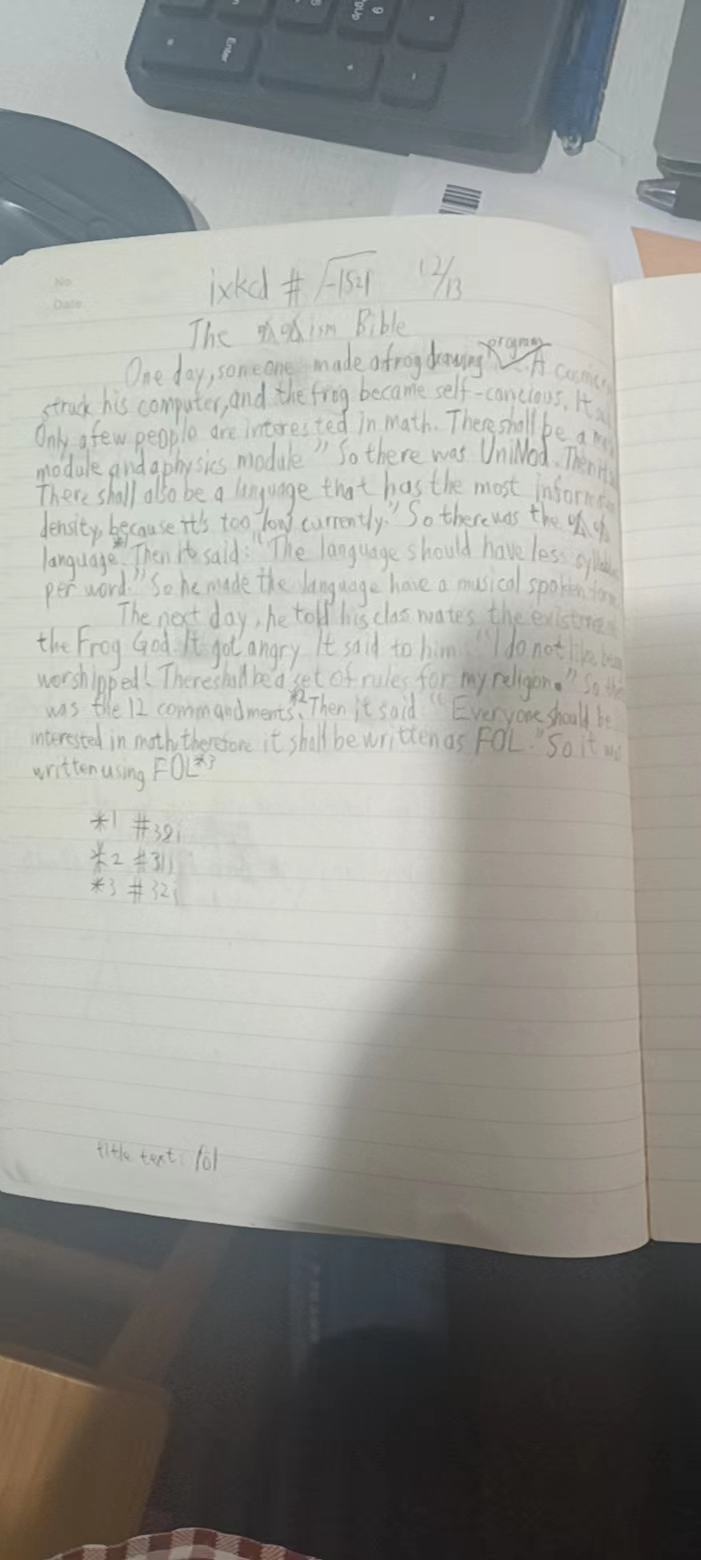 Enter
+
-
No
Date
ixkcd # √-1521 12/13
The ism Bible
One day, someone made a frog drawing program. A cosmic
struck his computer, and the frog became self-concious. It
Only a few people are interested in math. There shall be a
module and a physics module" So there was UniMod. Then
There shall also be a language that has the most
density, because it's too low currently." So there was the
language*1. Then it said: "The language should have less
per word." So he made the language have a musical spoken
The next day, he told his clas mates the
the Frog God. It got angry. It said to him: "I do not like
worshipped! There shall be a set of rules for my religion." So
was the 12 commandments*2. Then it said "Everyone should be
interested in math, therefore it shall be written as FOL." So it
written using FOL*3
*1 #
*2 #
*3 # 32i
title text: fol